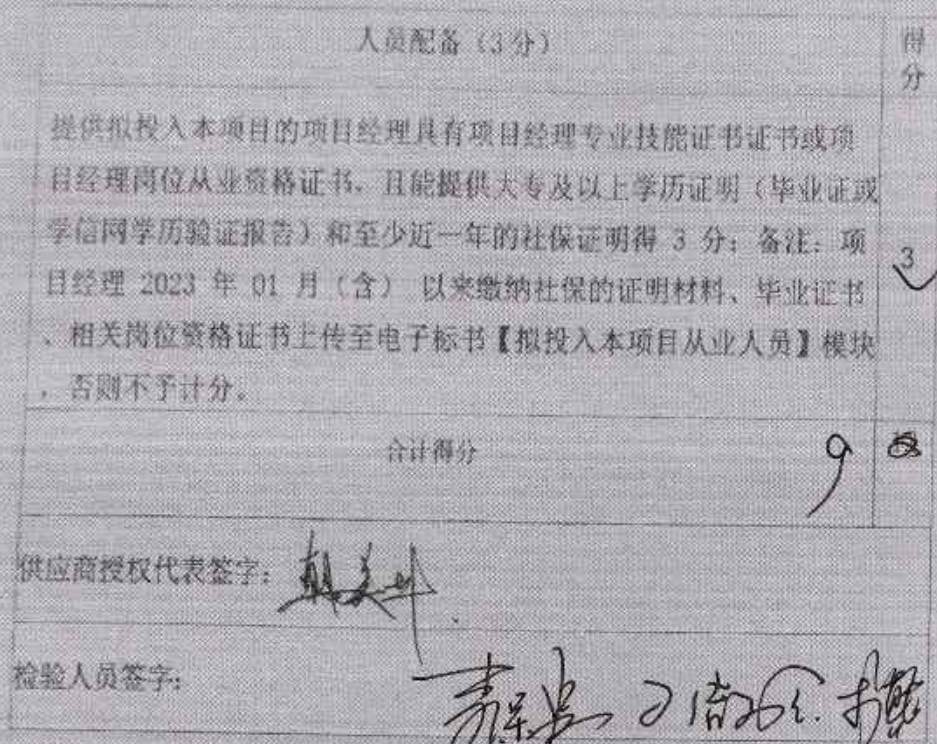 人员配备（3分）
得
分
提供拟投入本项目的项目经理具有项目经理专业技能证书证书或项
目经理岗位从业资格证书、且能提供大专及以上学历证明（毕业证或
学信网学历验证报告）和至少近一年的社保证明得 3 分；备注：项
目经理 2023 年 01 月（含） 以来缴纳社保的证明材料、毕业证书
、相关岗位资格证书上传至电子标书【拟投入本项目从业人员】模块
，否则不予计分。
3
合计得分
9
供应商授权代表签字：
检验人员签字：